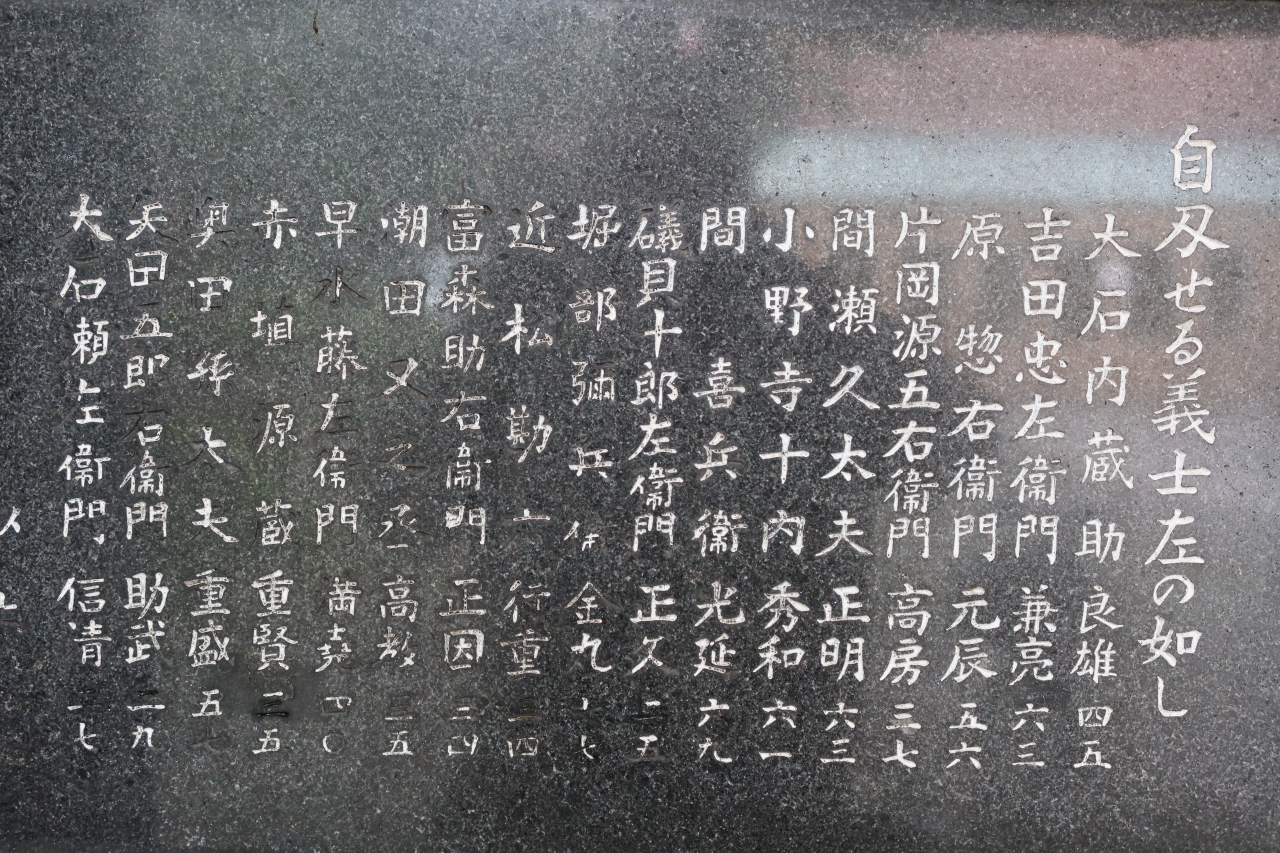 自刃せる義士左の如し
大石内蔵助良雄四五
吉田忠左衛門兼亮六三
原惣右衛門元辰五六
片岡源五右衛門高房三七
間瀬久太夫正明六三
小野寺十内秀和六一
間喜兵衛光延六九
礒貝十郎左衛門正久二五
堀部彌兵金九
近松勘六行重三四
富森助右衛門正因二四
潮田又之丞高教三五
早水藤左衛門満尭四〇
赤埴原蔵重賢三五
奥田大夫重盛五七
矢田五郎右衛門助武二九
大石頼左衛門信清二七